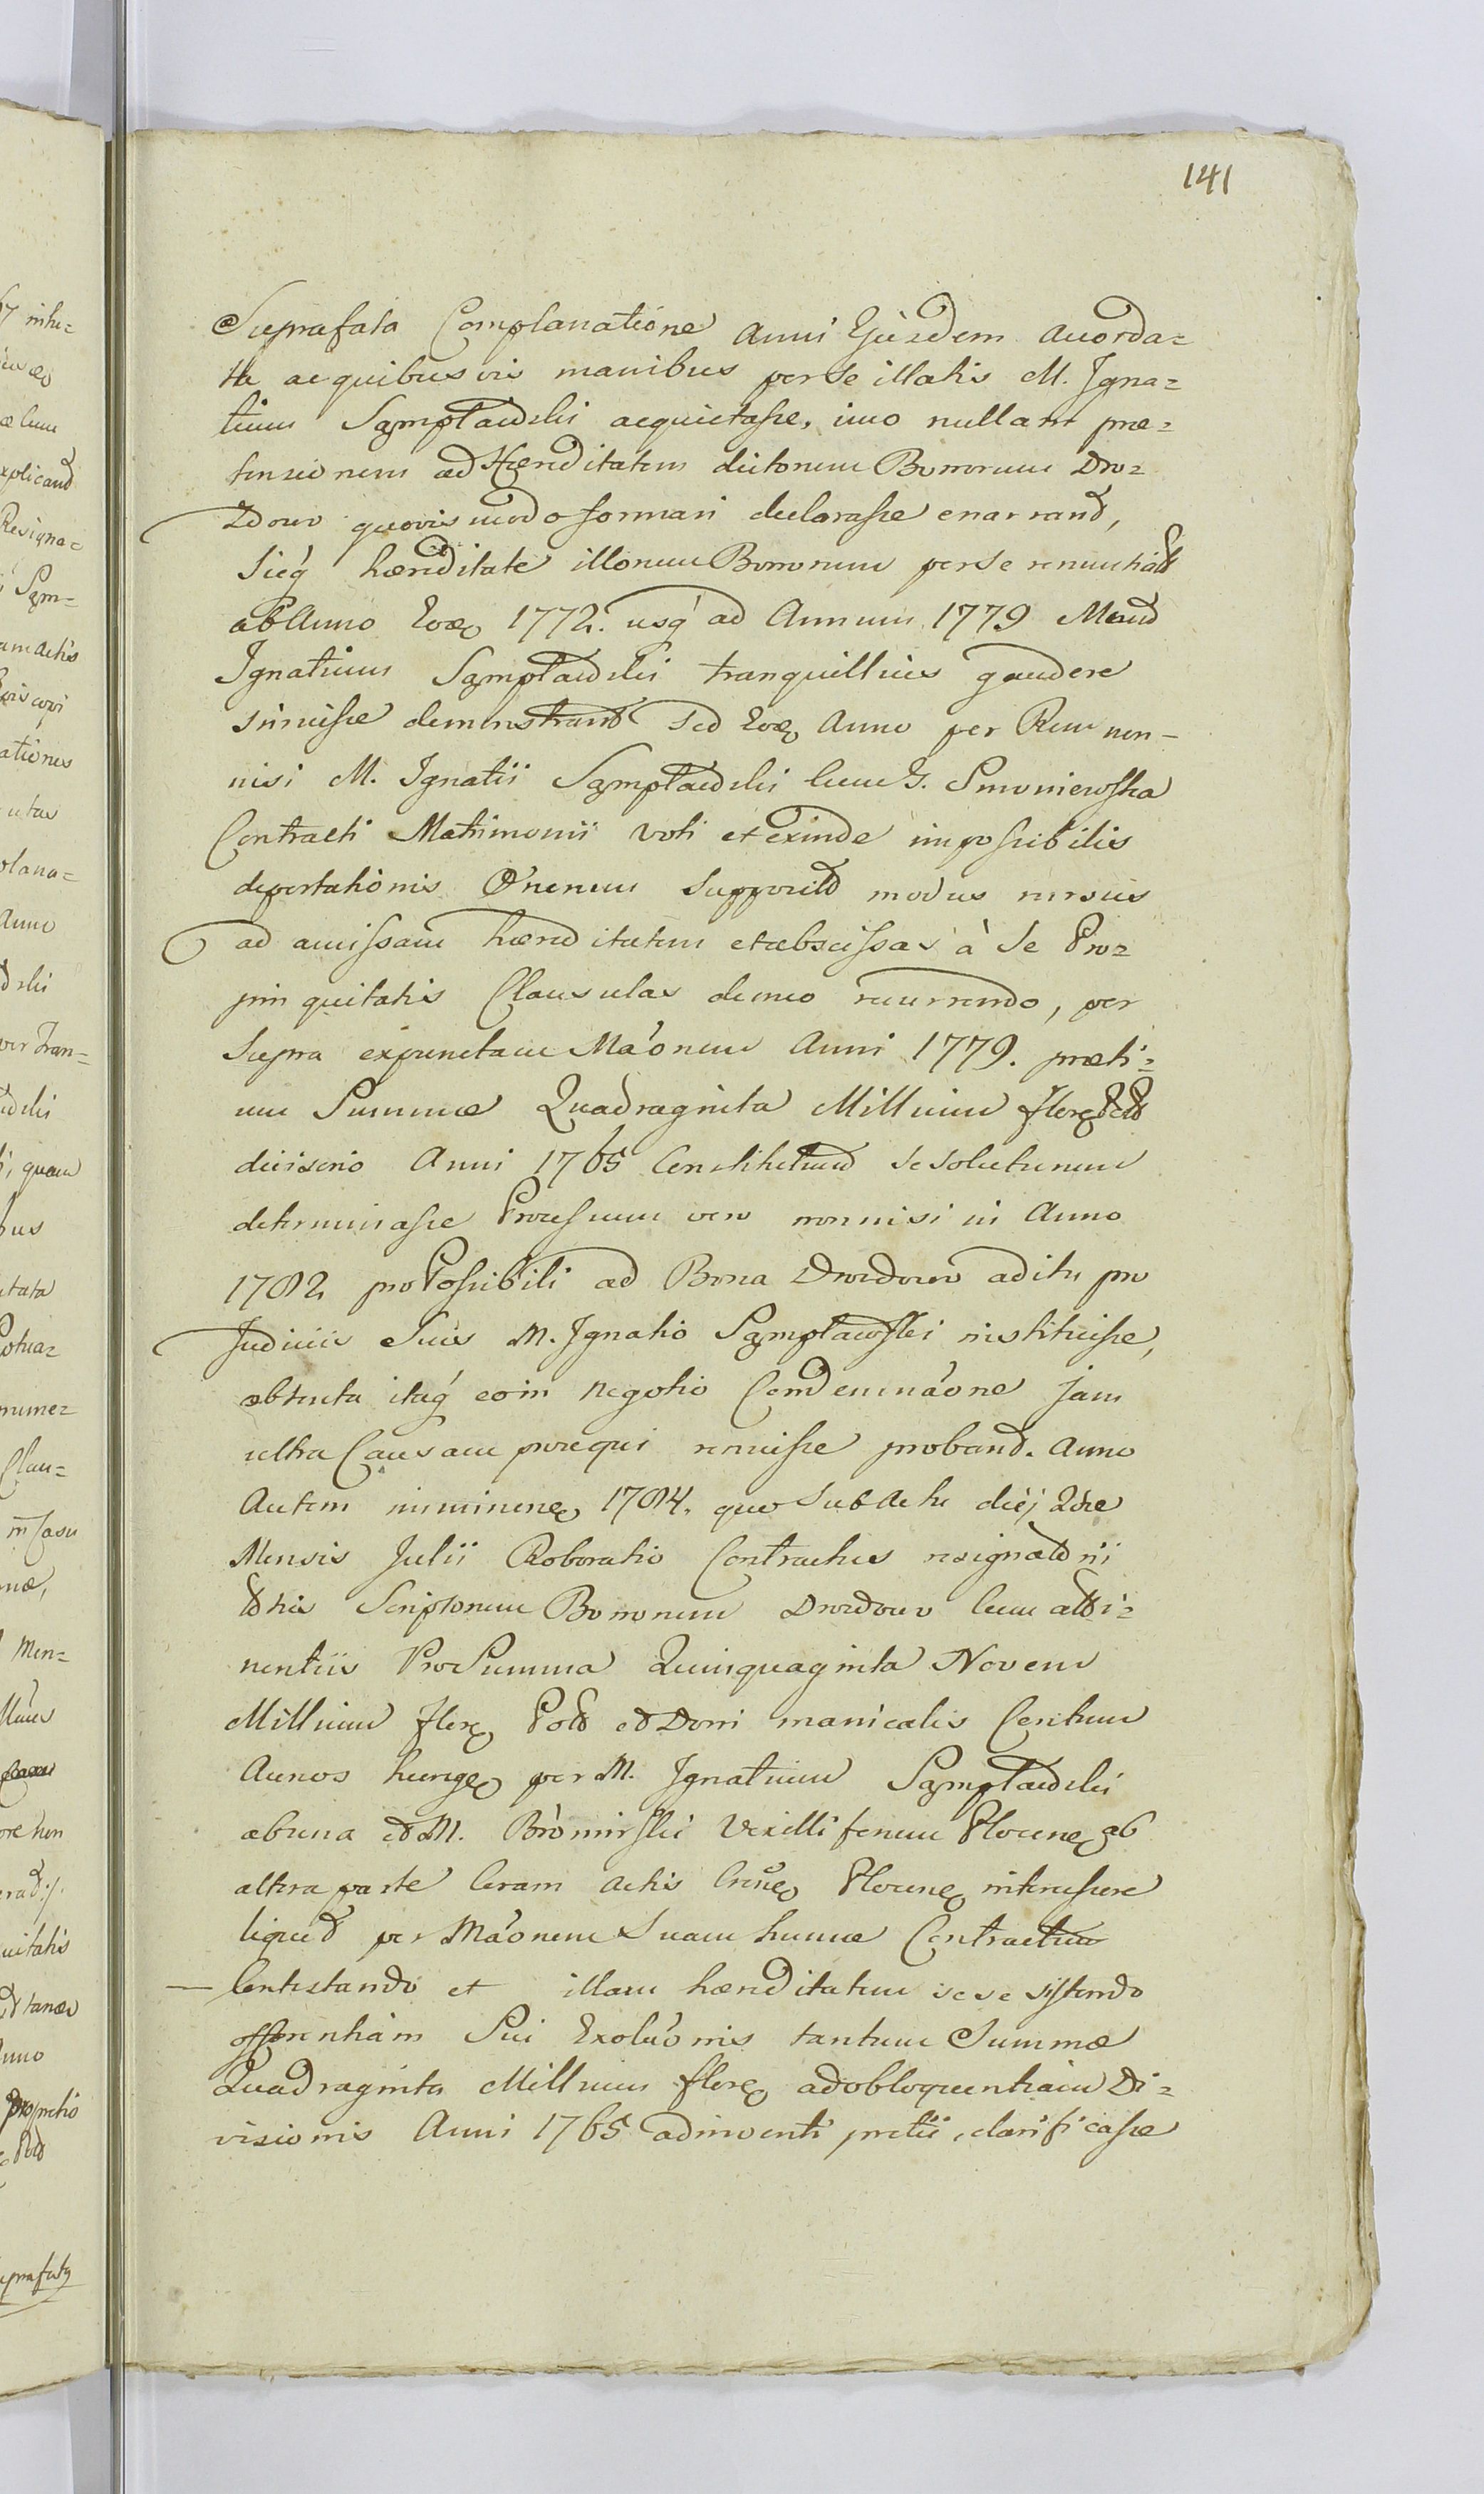 141
Suprafata Complanatione Anni Ejusdem accorda-
ta ac quibusvis manibus per se illatis M. Igna-
tium Sąmpławski acquietasse, imo nullam præ-
tensionem ad Hæreditatem dictorum Bonorum Dro-
zdowo quovis modo formari declarasse enarrand,
Sicq hæreditate illorum Bonorum per se renuntiatt
ab Anno Eoᵈ 1772. usq ad Annum 1779 Mand
Ignatium Sąmpławski tranquillius gaudere
sivisse demonstrand Sed Eoᵈ Anno per Rem non-
nisi M. Ignatii Sąmpławski cum G. Smoniewska
Contracti Matrimonii voti et exinde impossibilis
deportationis Onerum Supporitt modus rursus
ad amissam hæreditatem et abscissas à Se Pro-
pinquitatis Clausulas denuo recurrendo, per
Supra expunctam Mãonem Anni 1779. præti-
um Summæ Quadraginta Millium flor Polt
divisorio Anni 1765 Constitutum se soluturum
determinasse Processum vero nonnisi in Anno
1782 pro Possibili ad Bona Drozdowo aditu pro
Judiciis Suis M. Ignatio Sąmpławski instituisse,
obtenta itaq eo in negotio Condemnãone jam
ultra Causam prosequi renuisse proband. Anno
Autem imminene 1784. quo Sub Actu diej 2da
Mensis Julii Roboratio Contractus resignatorii
Scriptorum Bonorum Drozdowo cum atti-
nentiis Pro Summa Quinquaginta Novem
Millium flor Polt et Doni manicalis Centum
Aureos hung per M. Ignatium Sąmpławski
ab una et M. Bromirski Vexilliferum Plocen ab
altera parte Coram Actis Plocen intercessere
liquet per Mãonem Suam hunc Contractum
Contestando et illam hæreditatem se se sistendo
offerentiam Sui Exoluõnis tantum Summæ
Quadraginta Millium flor ad obloquentiam Di-
visionis Anni 1765 adinventi pretii, clarificasse